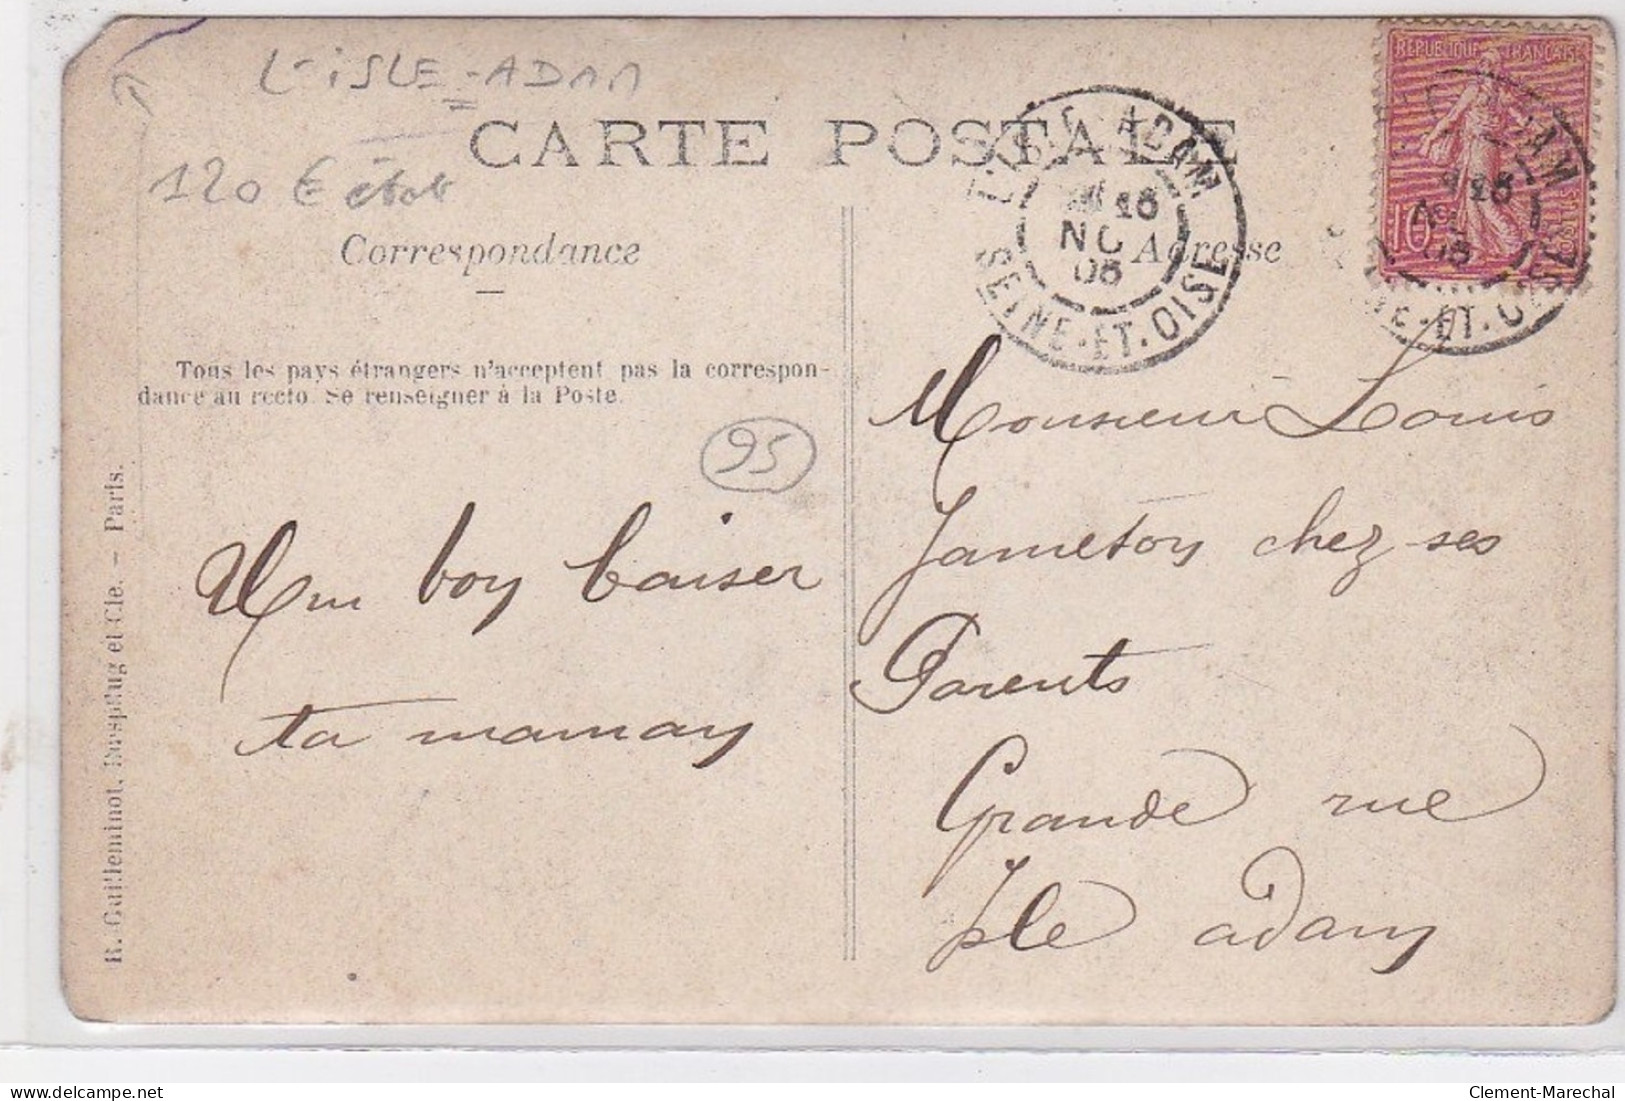 L'ISLE-ADAM
120 € état
CARTE POSTALE
Correspondance
Adresse
Tous les pays étrangers n'acceptent pas la correspon-
dance au recto. Se renseigner à la Poste.
95
Un bon baiser
ta maman
Monsieur Louis
Jameton chez ses
Parents
Grande rue
Isle adam
R. Guilleminot, Bœspflug et Cie. – Paris.
L'ISLE-ADAM
16
NO
05
SEINE-ET-OISE
REPUBLIQUE FRANÇAISE
10
POSTES
delcampe.net
Clement-Marechal